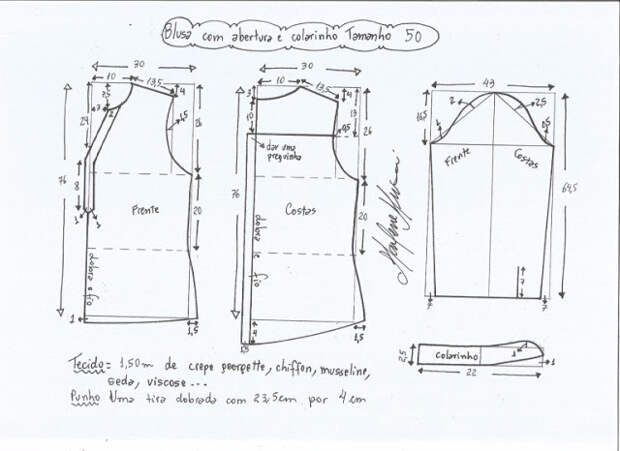 Blusa com abertura e colarinho Tamanho 50
30
10
13,5
4
7,5
7
2
24
1,5
26
76
8
1
1
Frente
20
dobra e fio
1
1,5
30
10
13,5
3
4
10
13
0,5
26
dar uma preguinha
76
Costas
20
dobra e fio
1,5
4
1,5
43
16,5
2
2,5
1
Frente
Costas
64,5
7
7
7
2,5
colarinho
1
1
22
Tecido = 1,50m de crepe georgette, chiffon, musseline,
seda, viscose...
Punho Uma tira dobrada com 23,5cm por 4 cm